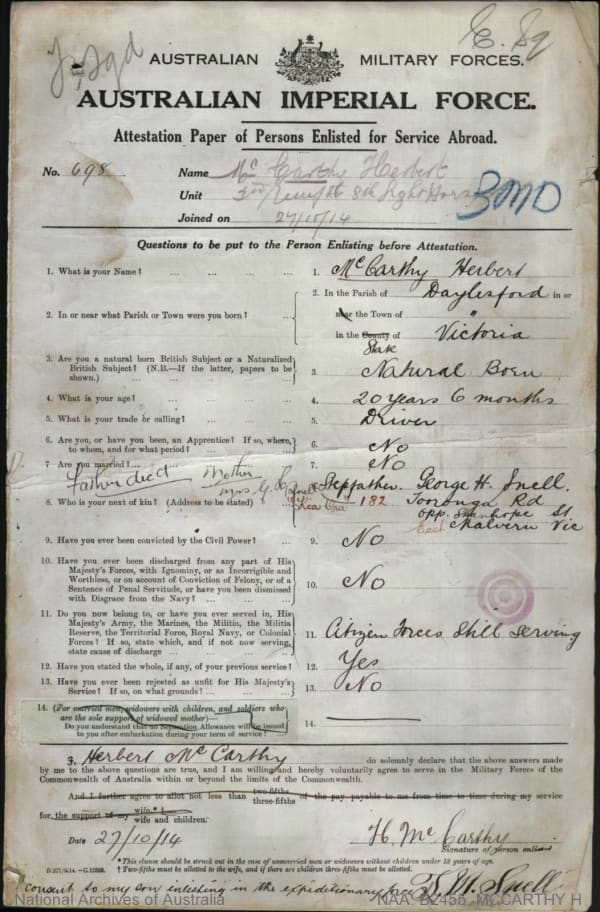 AUSTRALIAN MILITARY FORCES.
AUSTRALIAN IMPERIAL FORCE.
Attestation Paper of Persons Enlisted for Service Abroad.
No. 698 Name McCarthy Herbert
Unit 8th Light Horse
BMD
Joined on 27/10/14
Questions to be put to the Person Enlisting before Attestation.
1. What is your Name? ... ... ... ... 1. McCarthy Herbert
2. In or near what Parish or Town were you born? ... 2. In the Parish of Daylesford in or
near the Town of "
in the County of Victoria
State
3. Are you a natural born British Subject or a Naturalized
British Subject? (N.B.—If the latter, papers to be
shown.) ... ... ... ... 3. Natural Born
4. What is your age? ... ... ... ... 4. 20 years 6 months
5. What is your trade or calling? ... ... ... 5. Driver
6. Are you, or have you been, an Apprentice? If so, where,
to whom, and for what period? ... ... ... 6. No
7. Are you married? ... ... ... 7. No
Father dec'd Mother Mrs G. H. Snell
Stepfather George H. Snell.
8. Who is your next of kin? (Address to be stated) 182 Tooronga Rd
opp. Stanhope St
East Malvern Vic
9. Have you ever been convicted by the Civil Power? ... 9. No
10. Have you ever been discharged from any part of His
Majesty's Forces, with Ignominy, or as Incorrigible and
Worthless, or on account of Conviction of Felony, or of a
Sentence of Penal Servitude, or have you been dismissed
with Disgrace from the Navy? ... ... ... 10. No
11. Do you now belong to, or have you ever served in, His
Majesty's Army, the Marines, the Militia, the Militia
Reserve, the Territorial Force, Royal Navy, or Colonial
Forces? If so, state which, and if not now serving,
state cause of discharge ... ... ... 11. Citizen Forces Still Serving
12. Have you stated the whole, if any, of your previous service? 12. Yes
13. Have you ever been rejected as unfit for His Majesty's
Service? If so, on what grounds? ... ... 13. No
14. (For married men, widowers with children, and soldiers who
are the sole support of widowed mother)—
Do you understand that no Separation Allowance will be issued
to you after embarkation during your term of service? 14.
I, Herbert McCarthy do solemnly declare that the above answers made
by me to the above questions are true, and I am willing and hereby voluntarily agree to serve in the Military Forces of the
Commonwealth of Australia within or beyond the limits of the Commonwealth.
And I further agree to allot not less than two-fifths three-fifths of the pay payable to me from time to time during my service
for the support of my wife.* wife and children.
Date 27/10/14 H. McCarthy
Signature of person enlisted
*This clause should be struck out in the case of unmarried men or widowers without children under 18 years of age.
† Two-fifths must be allotted to the wife, and if there are children three-fifths must be allotted.
consent to my son enlisting in the expeditionary force Snell
National Archives of Australia NAA: B2455, MCCARTHY H